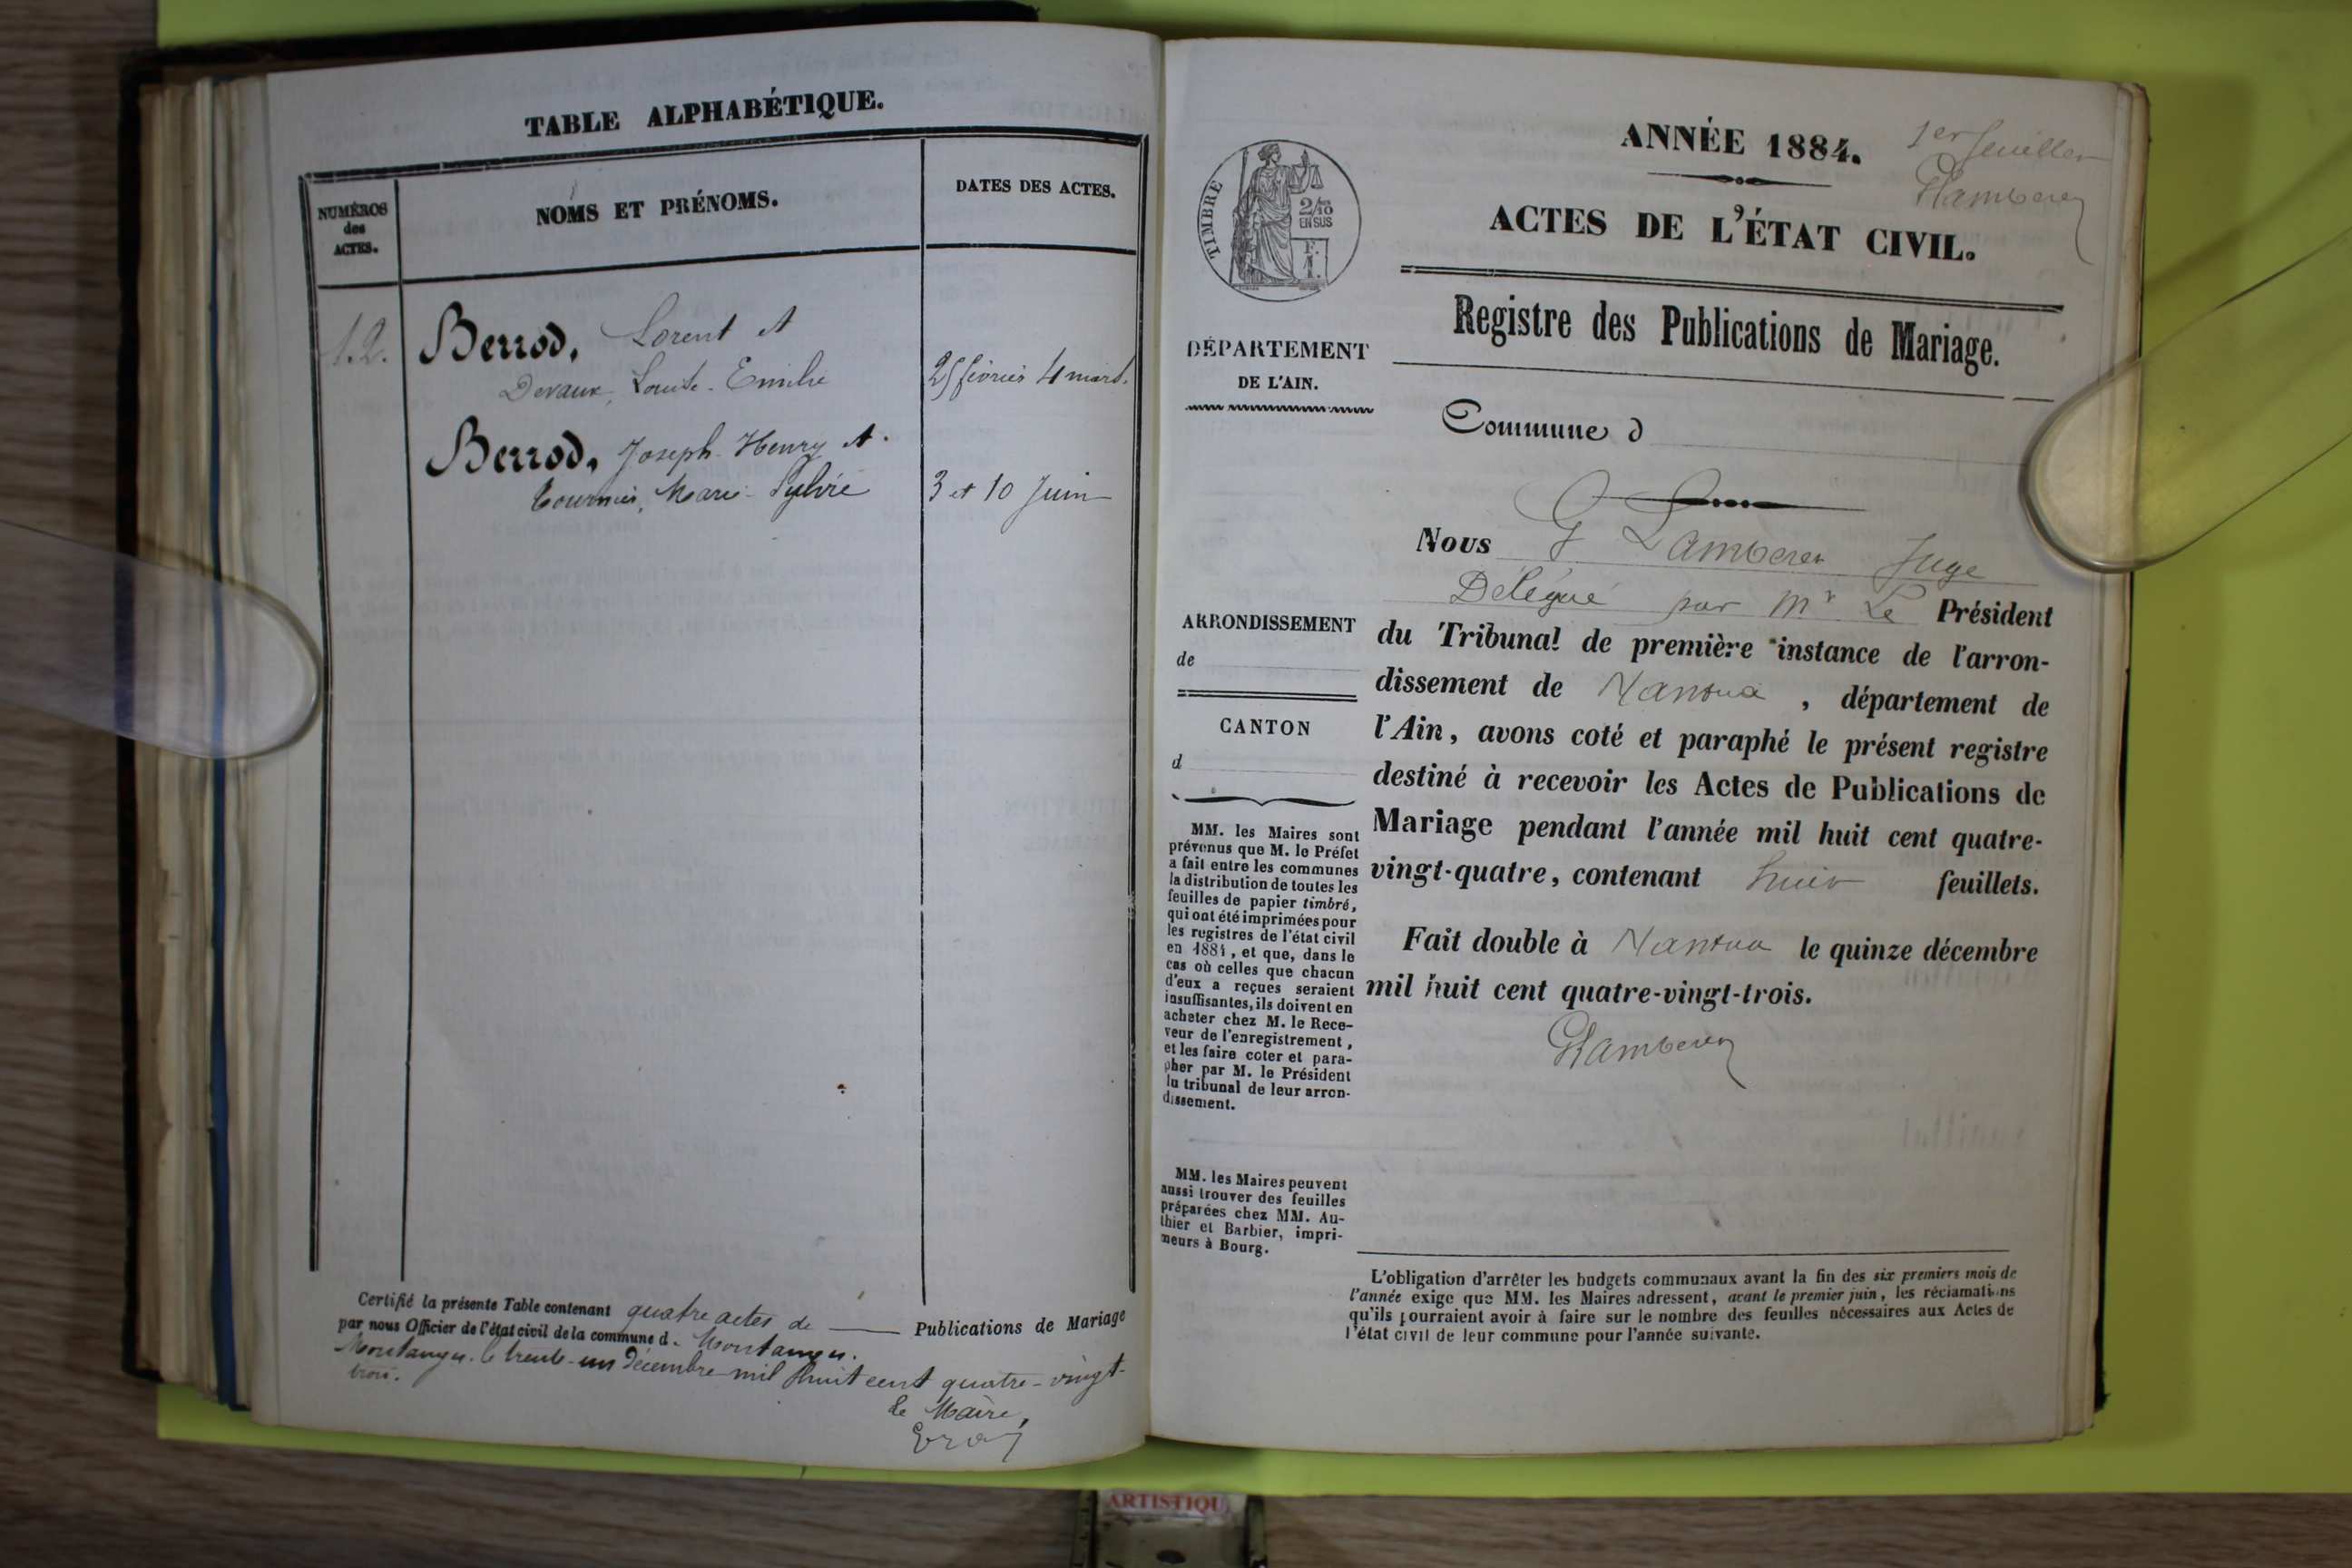 TABLE ALPHABÉTIQUE.
NUMÉROS
des
ACTES.
NOMS ET PRÉNOMS.
DATES DES ACTES.
1.2.
Berrod, Lorent et
Devaux, Louise-Emilie
25 février 4 mars.
Berrod, Joseph-Henry et
Tournier, Marie-Sylvie
3 et 10 Juin
Certifié la présente Table contenant quatre actes de — Publications de Mariage
par nous Officier de l'état civil de la commune d. Montanges.
Montanges. le trente-un Décembre mil huit cent quatre-vingt-
trois.
le Maire,
ANNÉE 1884.
1er feuillet
ACTES DE L'ÉTAT CIVIL.
TIMBRE
2/10
EN SUS
Registre des Publications de Mariage.
DÉPARTEMENT
DE L'AIN.
Commune d
Nous G Lamberet Juge
Délégué par Mr Le Président
du Tribunal de première instance de l'arron-
dissement de Nantua, département de
l'Ain, avons coté et paraphé le présent registre
destiné à recevoir les Actes de Publications de
Mariage pendant l'année mil huit cent quatre-
vingt-quatre, contenant huit feuillets.
Fait double à Nantua le quinze décembre
mil huit cent quatre-vingt-trois.
ARRONDISSEMENT
de
CANTON
d
MM. les Maires sont
prévenus que M. le Préfet
a fait entre les communes
la distribution de toutes les
feuilles de papier timbré,
qui ont été imprimées pour
les registres de l'état civil
en 1884, et que, dans le
cas où celles que chacun
d'eux a reçues seraient
insuffisantes, ils doivent en
acheter chez M. le Rece-
veur de l'enregistrement,
et les faire coter et para-
pher par M. le Président
du tribunal de leur arron-
dissement.
MM. les Maires peuvent
aussi trouver des feuilles
préparées chez MM. Au-
thier et Barbier, impri-
meurs à Bourg.
L'obligation d'arrêter les budgets communaux avant la fin des six premiers mois de
l'année exige que MM. les Maires adressent, avant le premier juin, les réclamations
qu'ils pourraient avoir à faire sur le nombre des feuilles nécessaires aux Actes de
l'état civil de leur commune pour l'année suivante.
ARTISTIQU